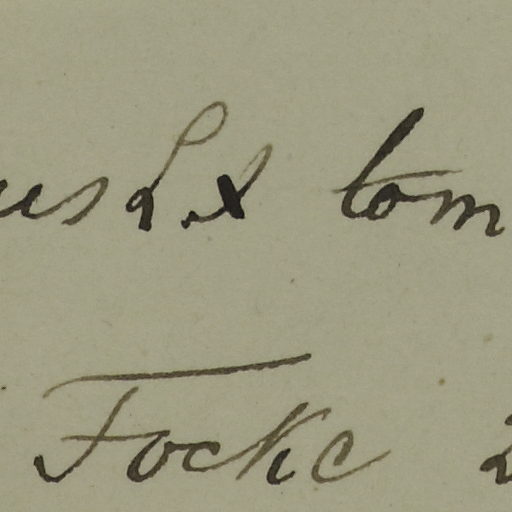 us L. x tom
Focke